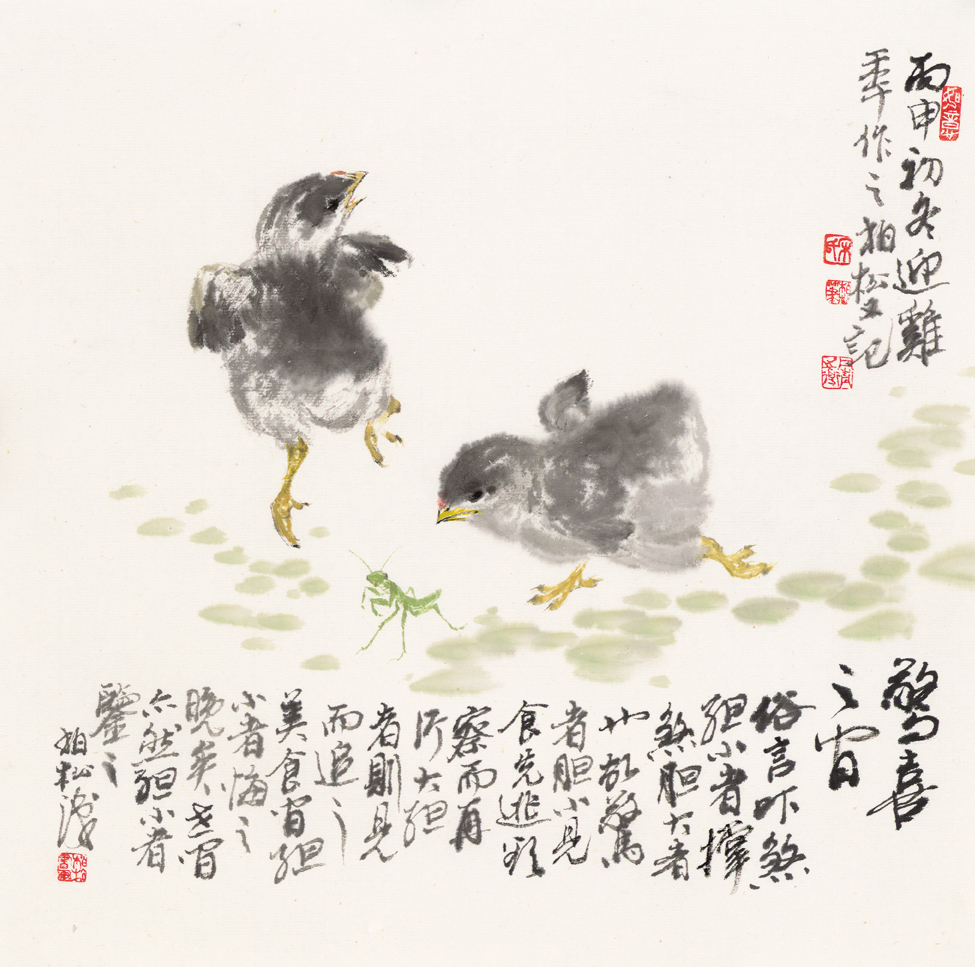 丙申初冬迎雞
年作之柏松又記
如意
驚喜
之间
俗言吓煞
胆小者撑
煞胆大者
也故驚
者胆小見
食先逃
察而再
行大胆
者則見
而追之
美食间胆
小者悔之
晚矣世间
亦然胆小者
鑒之
柏松